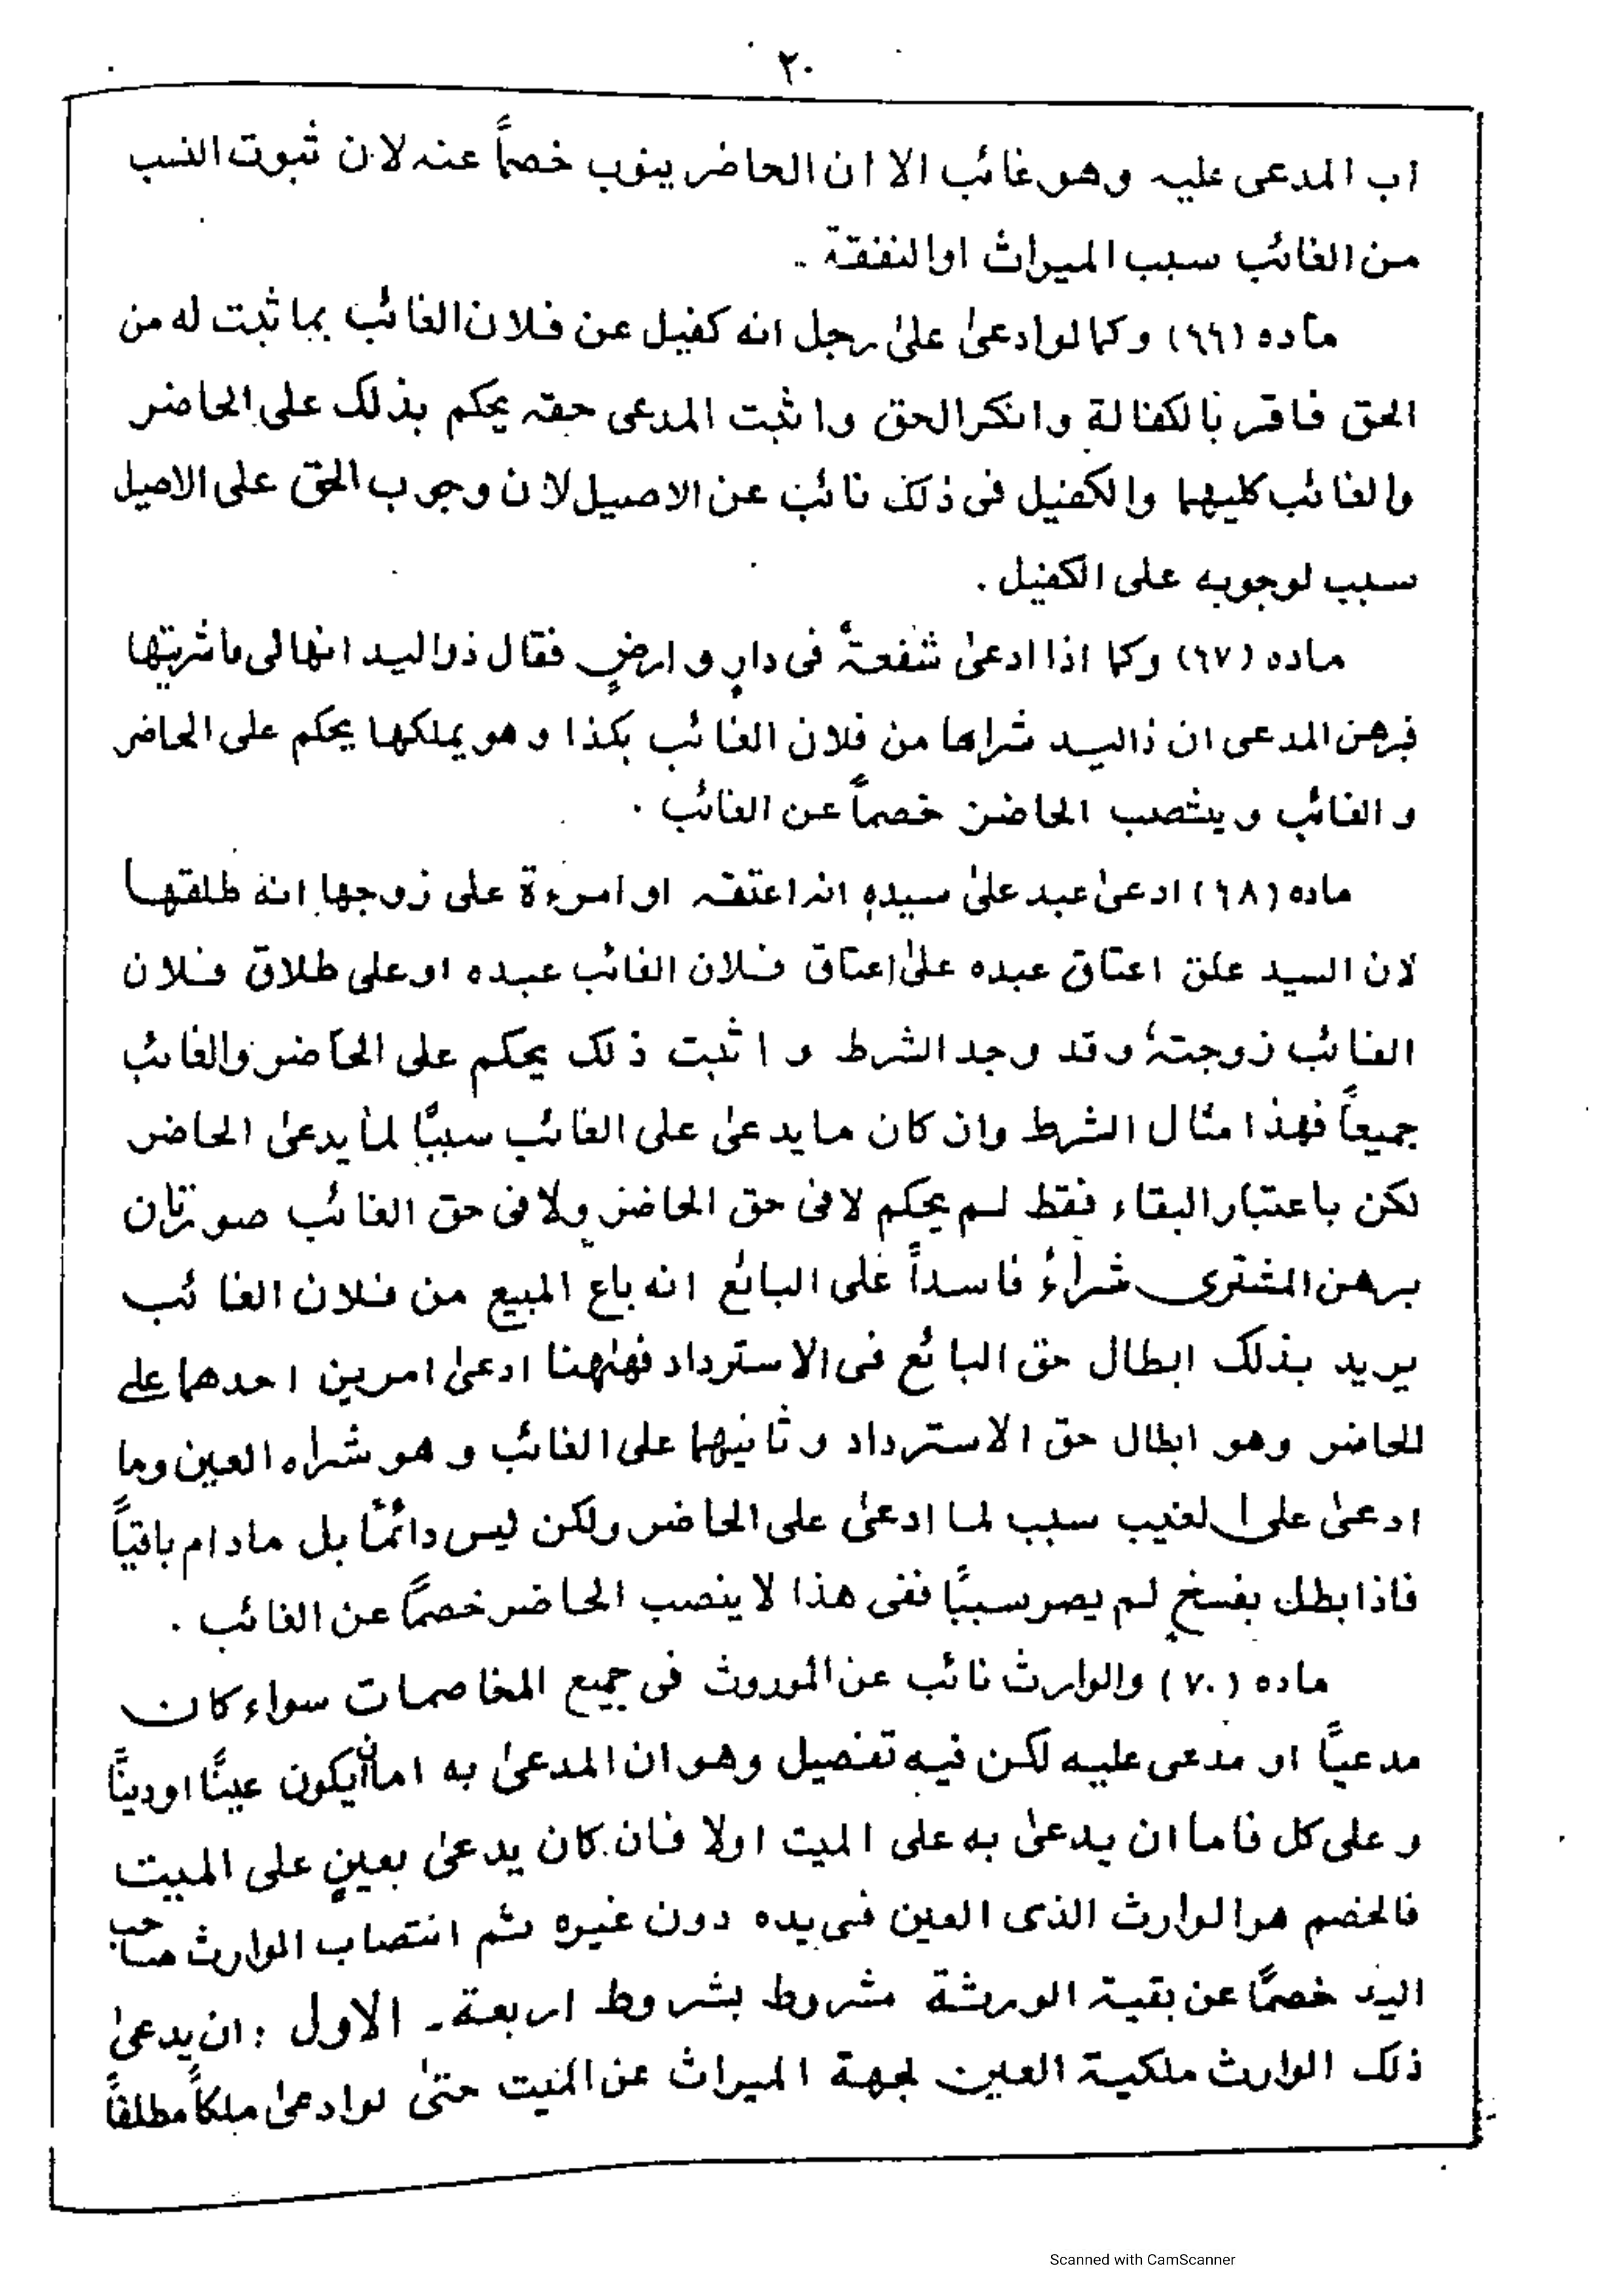 ٢٠
اب المدعى عليه وهو غائب الا ان الحاضر ينوب خصماً عنه لان ثبوت النسب
من الغائب سبب الميراث او النفقة ۔
ماده (٦٦) وكما لو ادعىٰ علىٰ رجل انه كفيل عن فلان الغائب بما ثبت له من
الحق فاقر بالكفالة وانكر الحق واثبت المدعى حقه يحكم بذلك على الحاضر
والغائب كليهما والكفيل فى ذلك نائب عن الاصيل لان وجوب الحق على الاصيل
سبب لوجوبه على الكفيل .
ماده (٦٧) وكما اذا ادعىٰ شفعةً فى دارٍ و ارضٍ فقال ذو اليد انها لى ما شريتها
فبرهن المدعى ان ذا اليد شراها من فلان الغائب بكذا وهو يملكها يحكم على الحاضر
و الغائب و ينتصب الحاضر خصماً عن الغائب .
ماده (٦٨) ادعىٰ عبد علىٰ سيدهٖ انه اعتقه او امرءة على زوجها انه طلقها
لان السيد علق اعتاق عبده علىٰ اعتاق فلان الغائب عبده او على طلاق فلان
الغائب زوجتهٗ وقد وجد الشرط و اثبت ذلك يحكم على الحاضر والغائب
جميعاً فهٰذا مثال الشرط وان كان ما يدعىٰ على الغائب سببًا لما يدعىٰ الحاضر
لكن باعتبار البقاء فقط لم يحكم لا فى حق الحاضر ولا فى حق الغائب صورتان
برهن المشترى شراءً فاسداً على البائع انه باع المبيع من فلان الغائب
يريد بذلك ابطال حق البائع فى الاسترداد فهٰهنا ادعىٰ امرين احدهما على
للحاضر وهو ابطال حق الاسترداد وثانيهما على الغائب و هو شراء العين وما
ادعىٰ على الغيب سبب لما ادعىٰ على الحاضر ولكن ليس دائمًا بل مادام باقياً
فاذا بطل بفسخٍ لم يصر سببًا ففى هذا لا ينصب الحاضر خصمًا عن الغائب .
ماده (٧٠) والوارث نائب عن الموروث فى جميع المخاصمات سواء كان
مدعيًا او مدعى عليه لكن فيه تفصيل وهو ان المدعىٰ به اما ان يكون عينًا او دينًا
و على كل فاما ان يدعىٰ به على الميت اولا فان كان يدعىٰ بعينٍ على الميت
فالخصم هو الوارث الذى العين فى يده دون غيره ثم انتصاب الوارث صاحب
اليد خصمًا عن بقية الورثة مشروط بشروط اربعة۔ الاول : ان يدعىٰ
ذلك الوارث ملكية العين لجهة الميراث عن الميت حتىٰ لو ادعىٰ ملكاً مطلقاً
Scanned with CamScanner